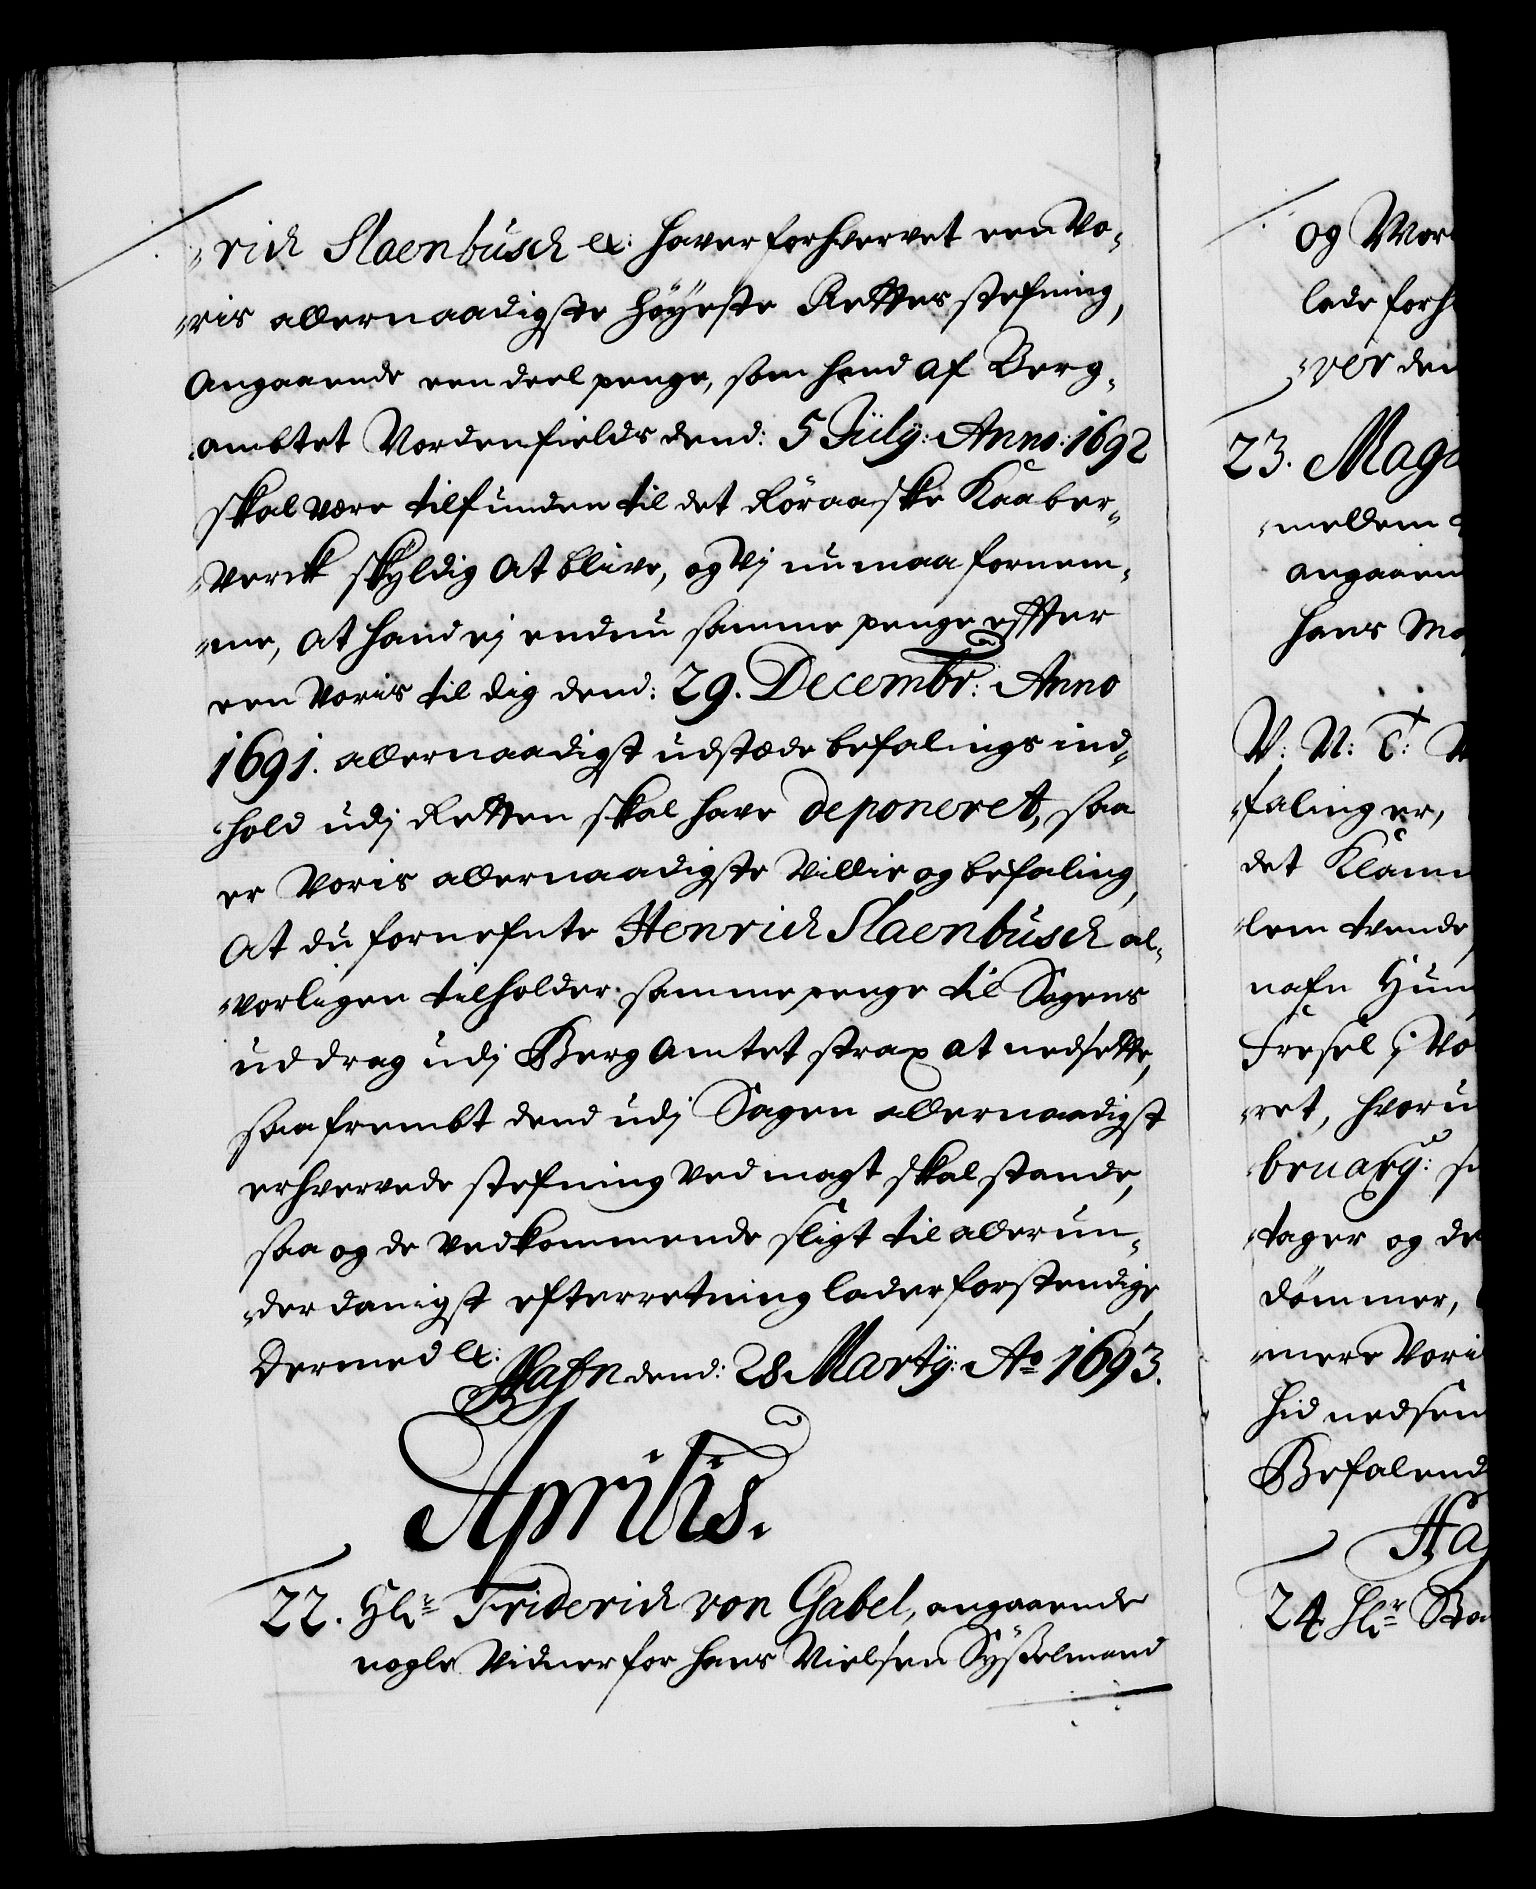 "rich Slaenbüsch etc: hafver forhvervet een Vo-
"ris allernaadigste Höyeste Retters stefning,
angaaende een deel penge, som hand af Berg-
"ambtet Nordenfields dend: 5 Jüly: Anno: 1692
skal være tilfunden til det Röraaske Kaaber-
"Verck skÿldig at blive, og Vj nu maa fornem-
"me, at hand ej endnu samme penge effter
een Voris til dig dend: 29. Decembr: Anno
1691. allernaadigst udstæde befalings ind-
"hold udj Retten skal have deponeret, saa
er Voris allernaadigste Villie og befaling,
at du fornefnte Henrich Slaenbüsch al-
"vorligen tilholder samme penge til Sagens
uddrag udj Berg Amtet strax at nedsette,
saafrembt dend udj Sagen allernaadigst
erhvervede stefning ved magt skal stande,
saa og de Vedkommende sligt til allerun-
"derdanigst efterretning lader forstendige,
Dermed etc: Hafn dend: 28 Martÿ: Ao 1693.
Aprilis.
22. Hlr Friderich von Gabel, angaaende
nogle Vidner for Hans Nielsen Sÿsselmand
og Vor
lade forh
"ver den
23. Mag
"mellem
angaaen
Hans Ma
V: N: C: V
"faling er,
det Klam
"lem tvende
nafn Hun
Fresel i Vo
"ret, hvoru
bruary: s
"tager og de
dömmer,
"mere Vori
hid nedsen
Befalend
Ha
24 Hlr